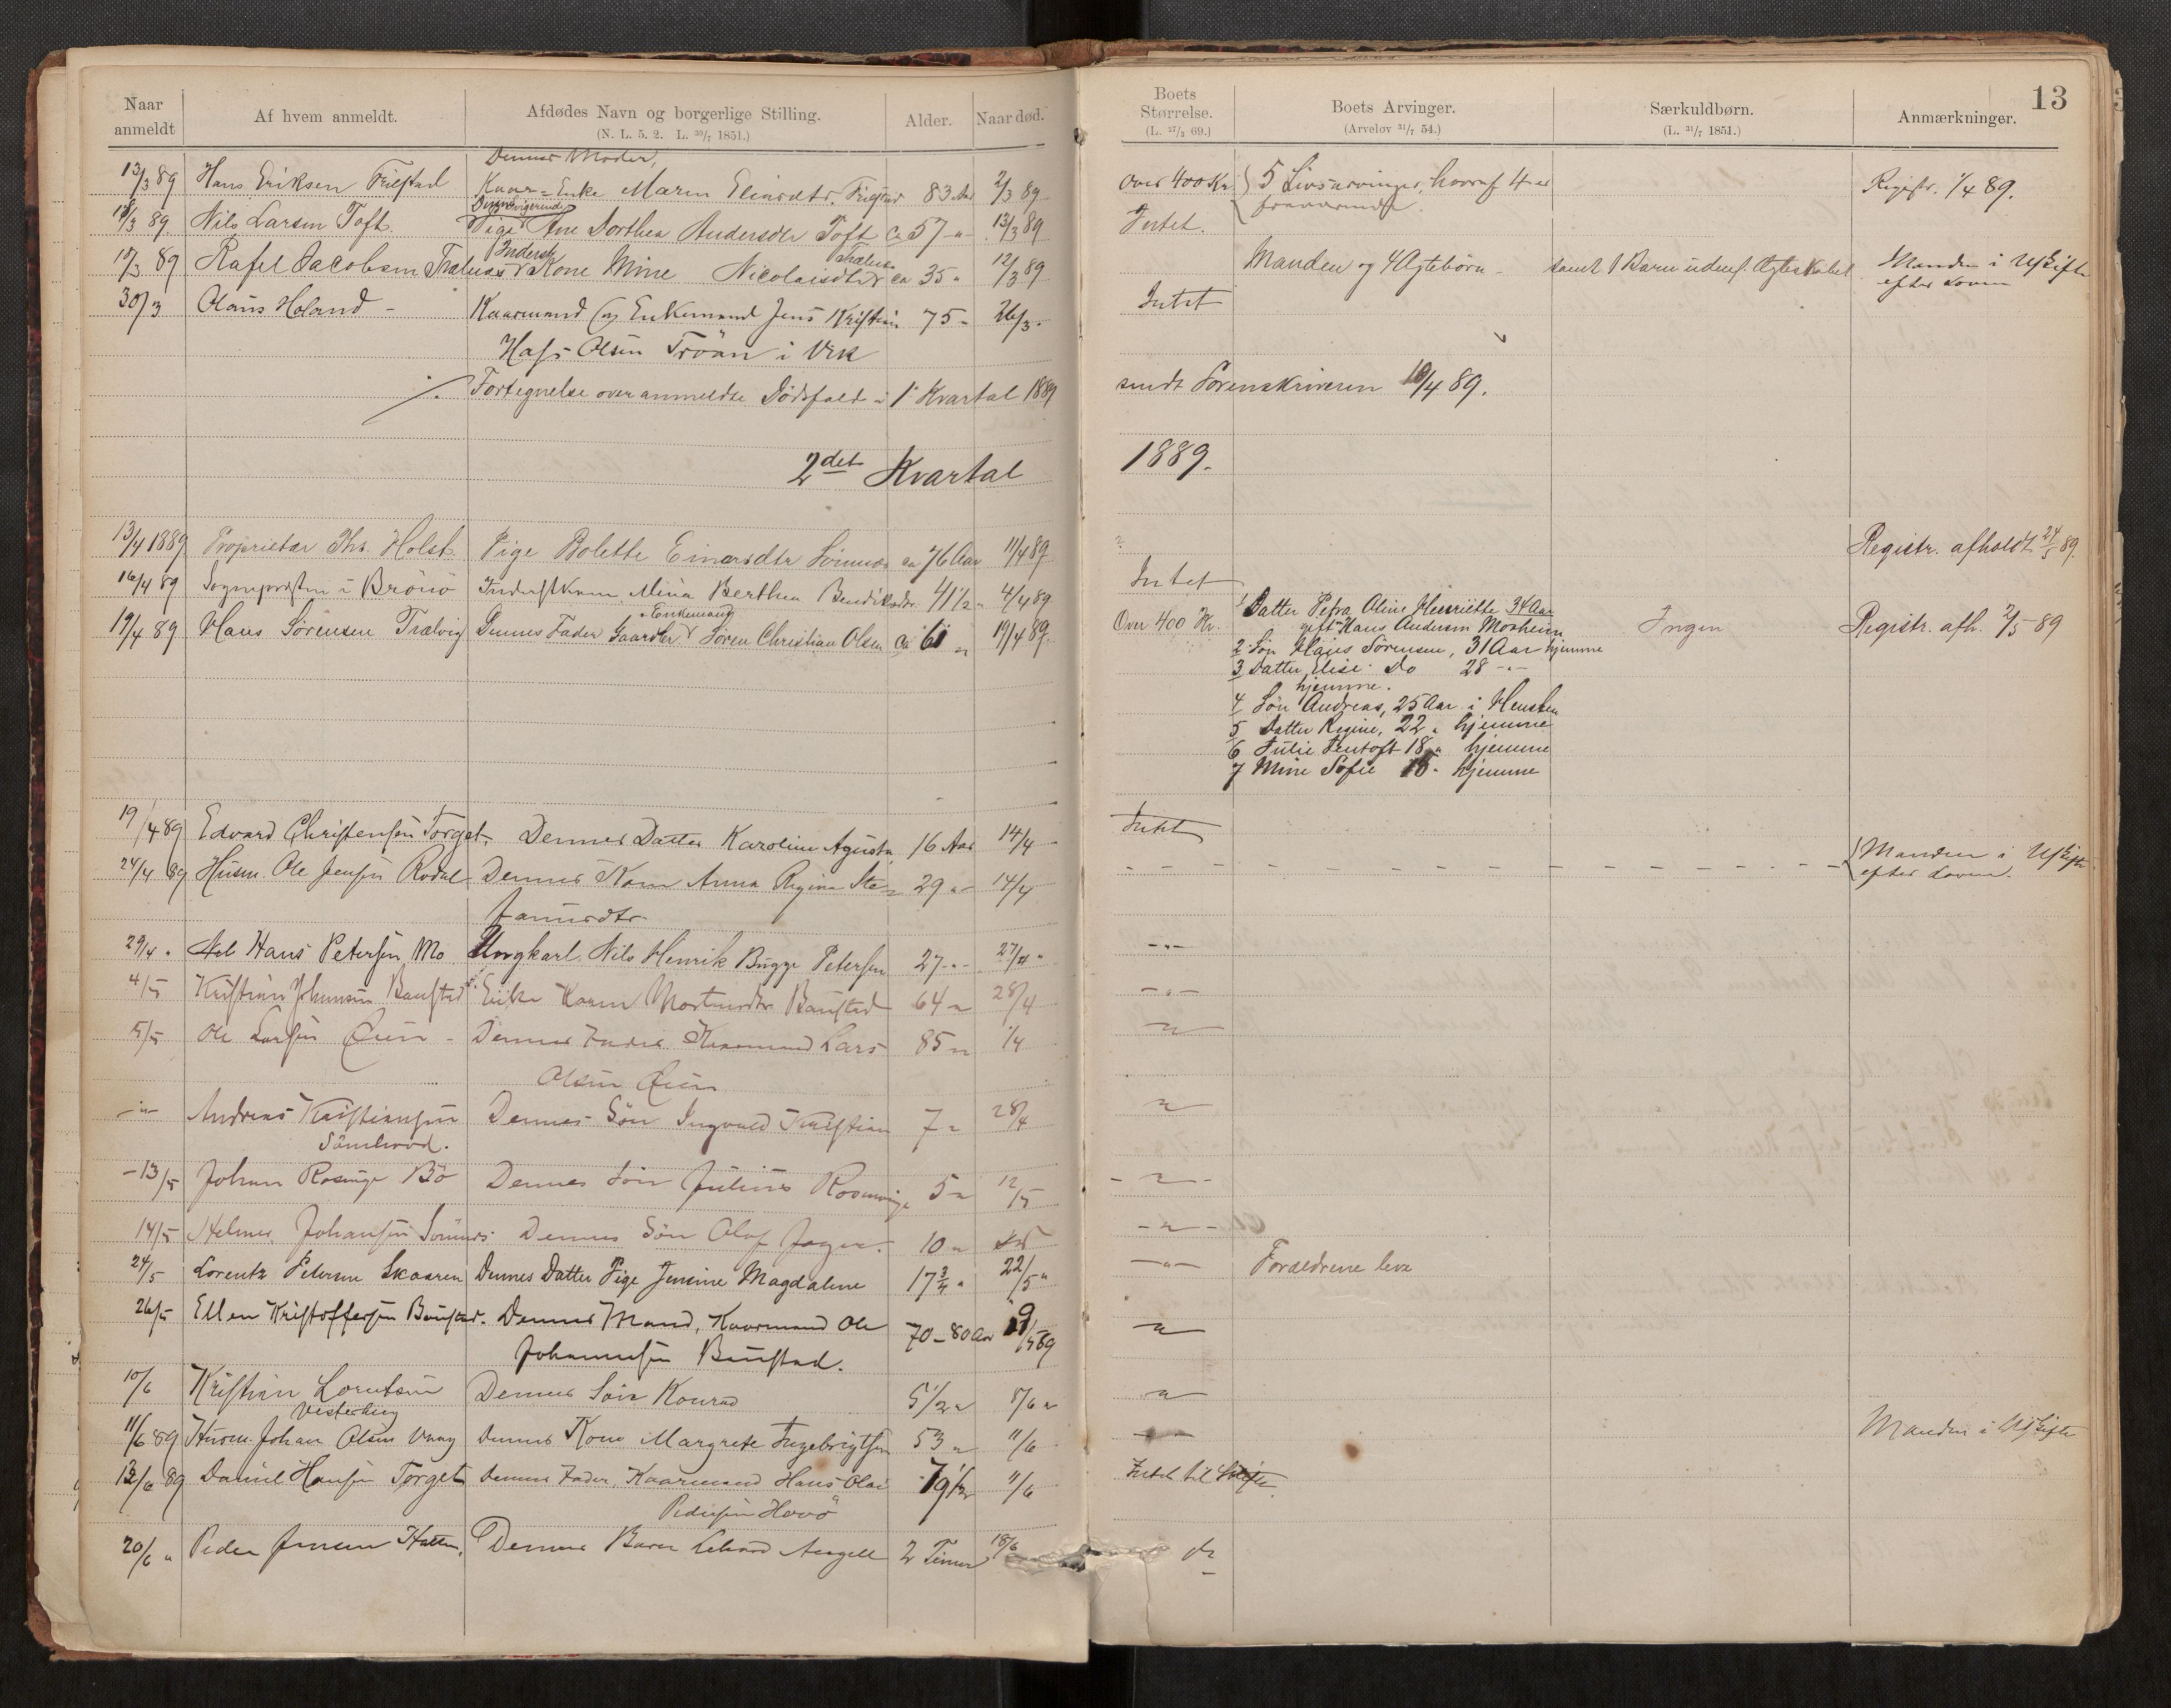 13
Naar anmeldt
Af hvem anmeldt.
Afdødes Navn og borgerlige Stilling.
(N. L. 5. 2. L. 30/7 1851.)
Alder.
Naar død.
Boets Størrelse.
(L. 27/3 69.)
Boets Arvinger.
(Arvelov 31/7 54.)
Særkuldbørn.
(L. 31/7 1851.)
Anmærkninger.
Dennes Moder,
13/3 89 Hans Eriksen Kaar-Enke Maren 83 Aar 2/3 89 Over 400 Kr. 5 Livsarvinger, hvoraf 4 er Registr. 1/4 89.
fraværende.
/3 89. Nils Larsen Toft. Pige Ane Dorthea Andersdtr Toft ca 57 " 13/3 89 Intet.
Inderst
/3 89 Rafel Jacobsen Kone Mine Nicolaisdtr ca 35 " 12/3 89 Manden og 4 Ægtebørn - samt 1 Barn udenf. Ægteskabet Manden i Uskifte
efter Loven
30/3 Olaus Holand - Kaarmand og Enkemand Jens Kristian 75 " 26/3 - Intet
Olsen Troan i Vik
Fortegnelse over anmeldte Dødsfald i 1ste Kvartal 1889 sendt Sorenskriveren 10/4 89.
2det Kvartal 1889.
13/4 1889 Proprietær Chr. Holst. Pige Bolette Einersdtr ca 76 Aar 11/4 89 ? Registr. afholdt 24/5 89.
16/4 89 Sognepresten i Brønø Inderstkone Mina Berthea Bendiksdtr. 41 1/2 " 4/4 89 Intet
Enkemand
19/4 89 Hans Sørensen Trælvig Dennes Fader Gaardbr Søren Christian Olsen ca 61 " 19/4 89 Over 400 Kr. 1 Datter Petra Oline Henriette 34 Aar Ingen Registr. afh. 2/5 89
gift Hans Andersen Mosheim
2 Søn Hans Sørensen, 31 Aar hjemme
3 Datter Elise Do 28 -"-
hjemme.
4 Søn Andreas, 25 Aar i
5 Datter Regine, 22 " hjemme
6 Julie 18 " hjemme
7 Mine Sofie 15 - hjemme
19/4 89 Edvard Christensen Torget. Dennes Datter Karoline Agusta 16 Aar 14/4 Intet
24/4 89 Husm. Ole Jensen Rodal Dennes Kone Anna Regina Ste- 29 " 14/4 - - - - - - - - Manden i Uskifte
fanusdtr efter Loven.
29/4 " Hans Petersen Mo Ungkarl Nils Henrik Bugge Petersen 27 - " - 27/4 " -"-
4/5 Kristian Johansen Baustad Enke Karen Mortensdtr Baustad 64 " 28/4 -"-
5/5 Ole Larsen Øien - Dennes Fader Kaarmand Lars 85 " 1/4 "
Olsen Øien
-"- Andreas Kristiansen Dennes Søn Ingvald Kristian 7 " 28/4 "
Sømhovd.
- 13/5 Johan Rosinge Bø Dennes Søn Julius Rosinge 5 " 12/5 - " -
14/5 Helmer Johansen Sømnes Dennes Søn Olaf 10 " - " -
24/5 Lorentz Petersen Skaaren Dennes Datter Pige Jensine Magdalene 17 3/4 " 22/5 " -"- Foreldrene leve
26/5 Ellen Kristoffersen Baustad. Dennes Mand, Kaarmand Ole 70-80 Aar /5 89 "
Johannesen Baustad.
10/6 Kristian Lorntsen Dennes Søn Konrad 5 1/2 " 8/6 " "
11/6 89 Husm. Johan Olsen Dennes Kone Margrete Ingebrigtsen 53 " 11/6 Manden i Uskifte
13/6 89 Daniel Hansen Torget Dennes Fader, Kaarmand Hans Olai 79 1/2 11/6 Intet til Skifte.
Pedersen
20/6 " Peder Jensen Hatten. Dennes Barn 2 Timer 18/6 do